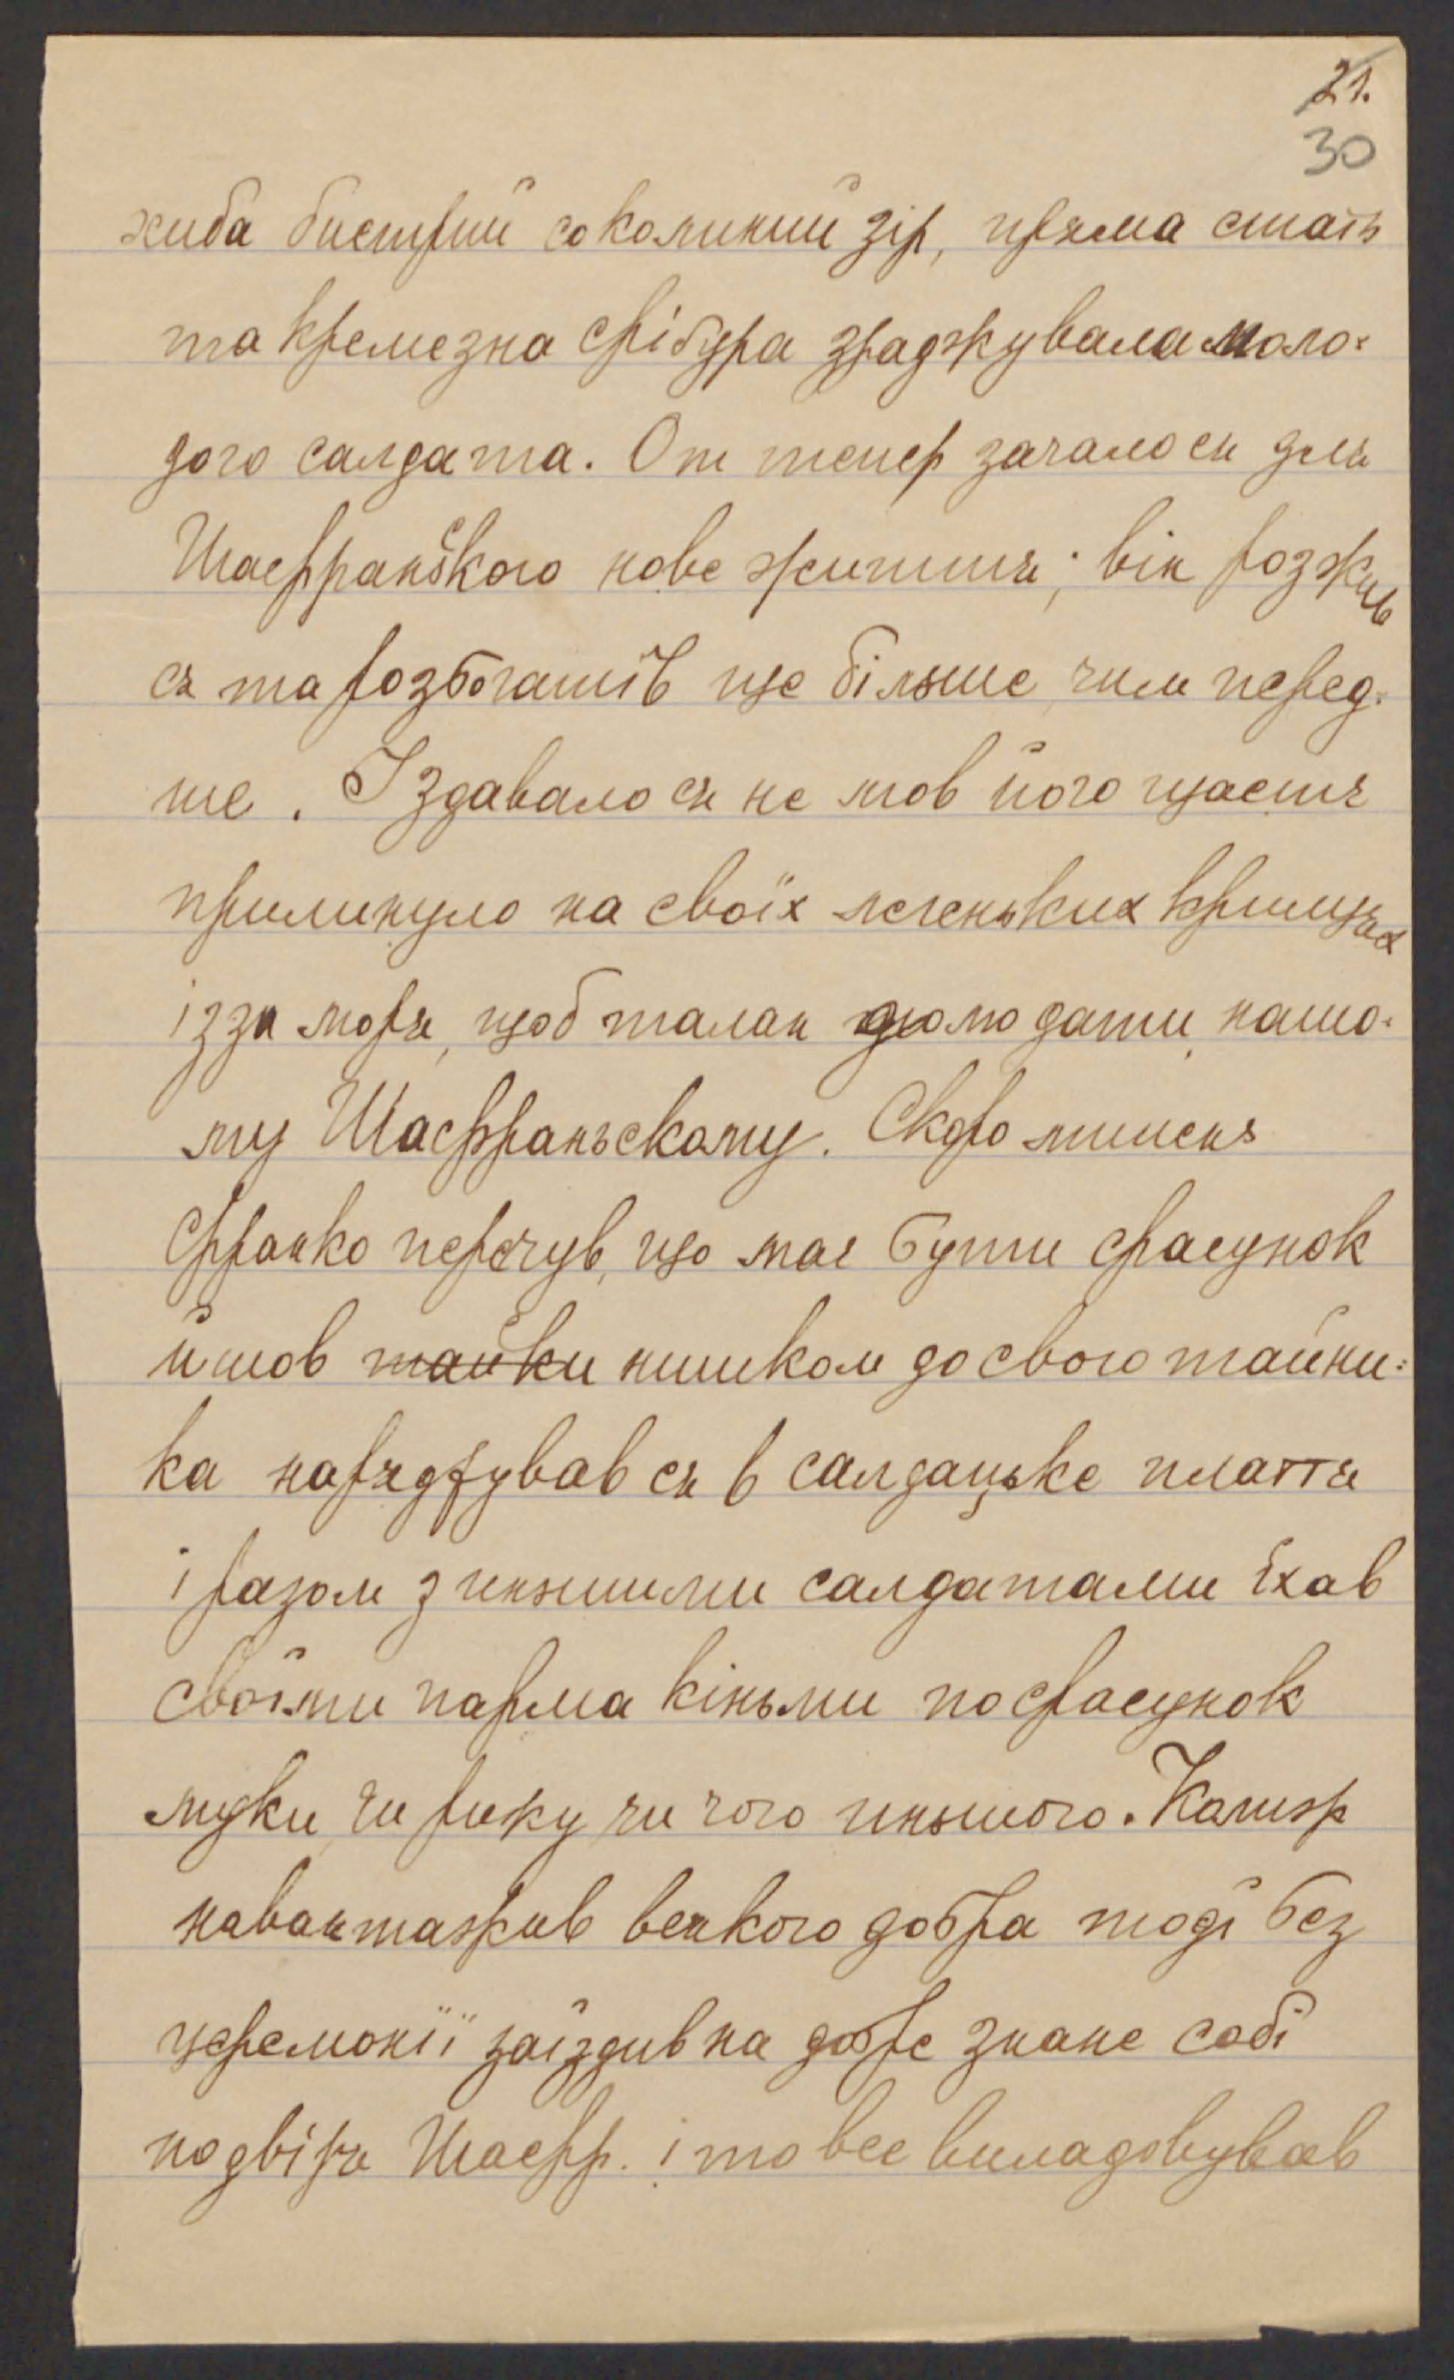 21.
30
хиба бистрий соколиний зір, пряма стать
та кремезна фіґура зраджувала моло-
дого салдата. От тепер зачалося для
Шафраньского нове життя; він розжив
ся та розбогатів ще більше, чим перед-
ше. Iздавало ся не мов його щастя
прилинуло на своїх легеньких крильцях
ізза моря, щоб талан долю дати нашо-
му Шафраньскому. Скоро лишень
Франко перечув, що має бути фасунок
йшов тайки нишком до свого тайни-
ка нарядžував ся в салдацьке плаття
і разом з иньшими салдатами їхав
своїми парма кіньми по фасунок
муки, чи рижу чи чого иньшого. Калиж
навантажив всякого добра тоді без
церемонії заїздив на добре знане собі
подвіря Шафр. і то все виладовував